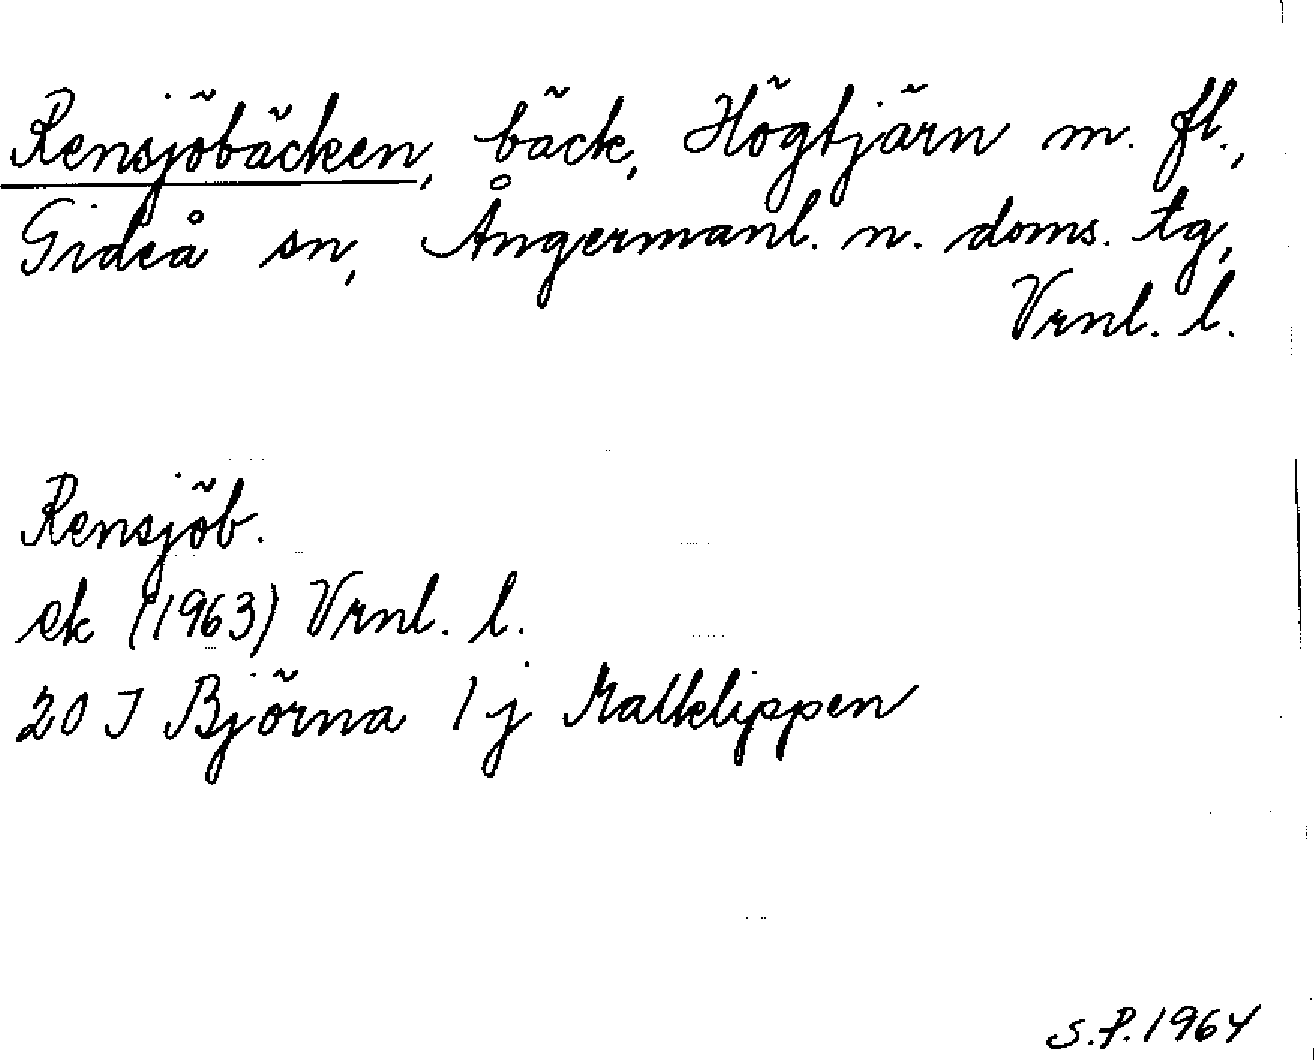 Rensjöbäcken, bäck, Högtjärn m. fl.,
Gideå sn, Ångermanl. n. doms. tg,
Vrnl. l.
Rensjöb.
ek (1963) Vrnl. l.
20 J Björna 1 j Malklippen
S.P. 1964